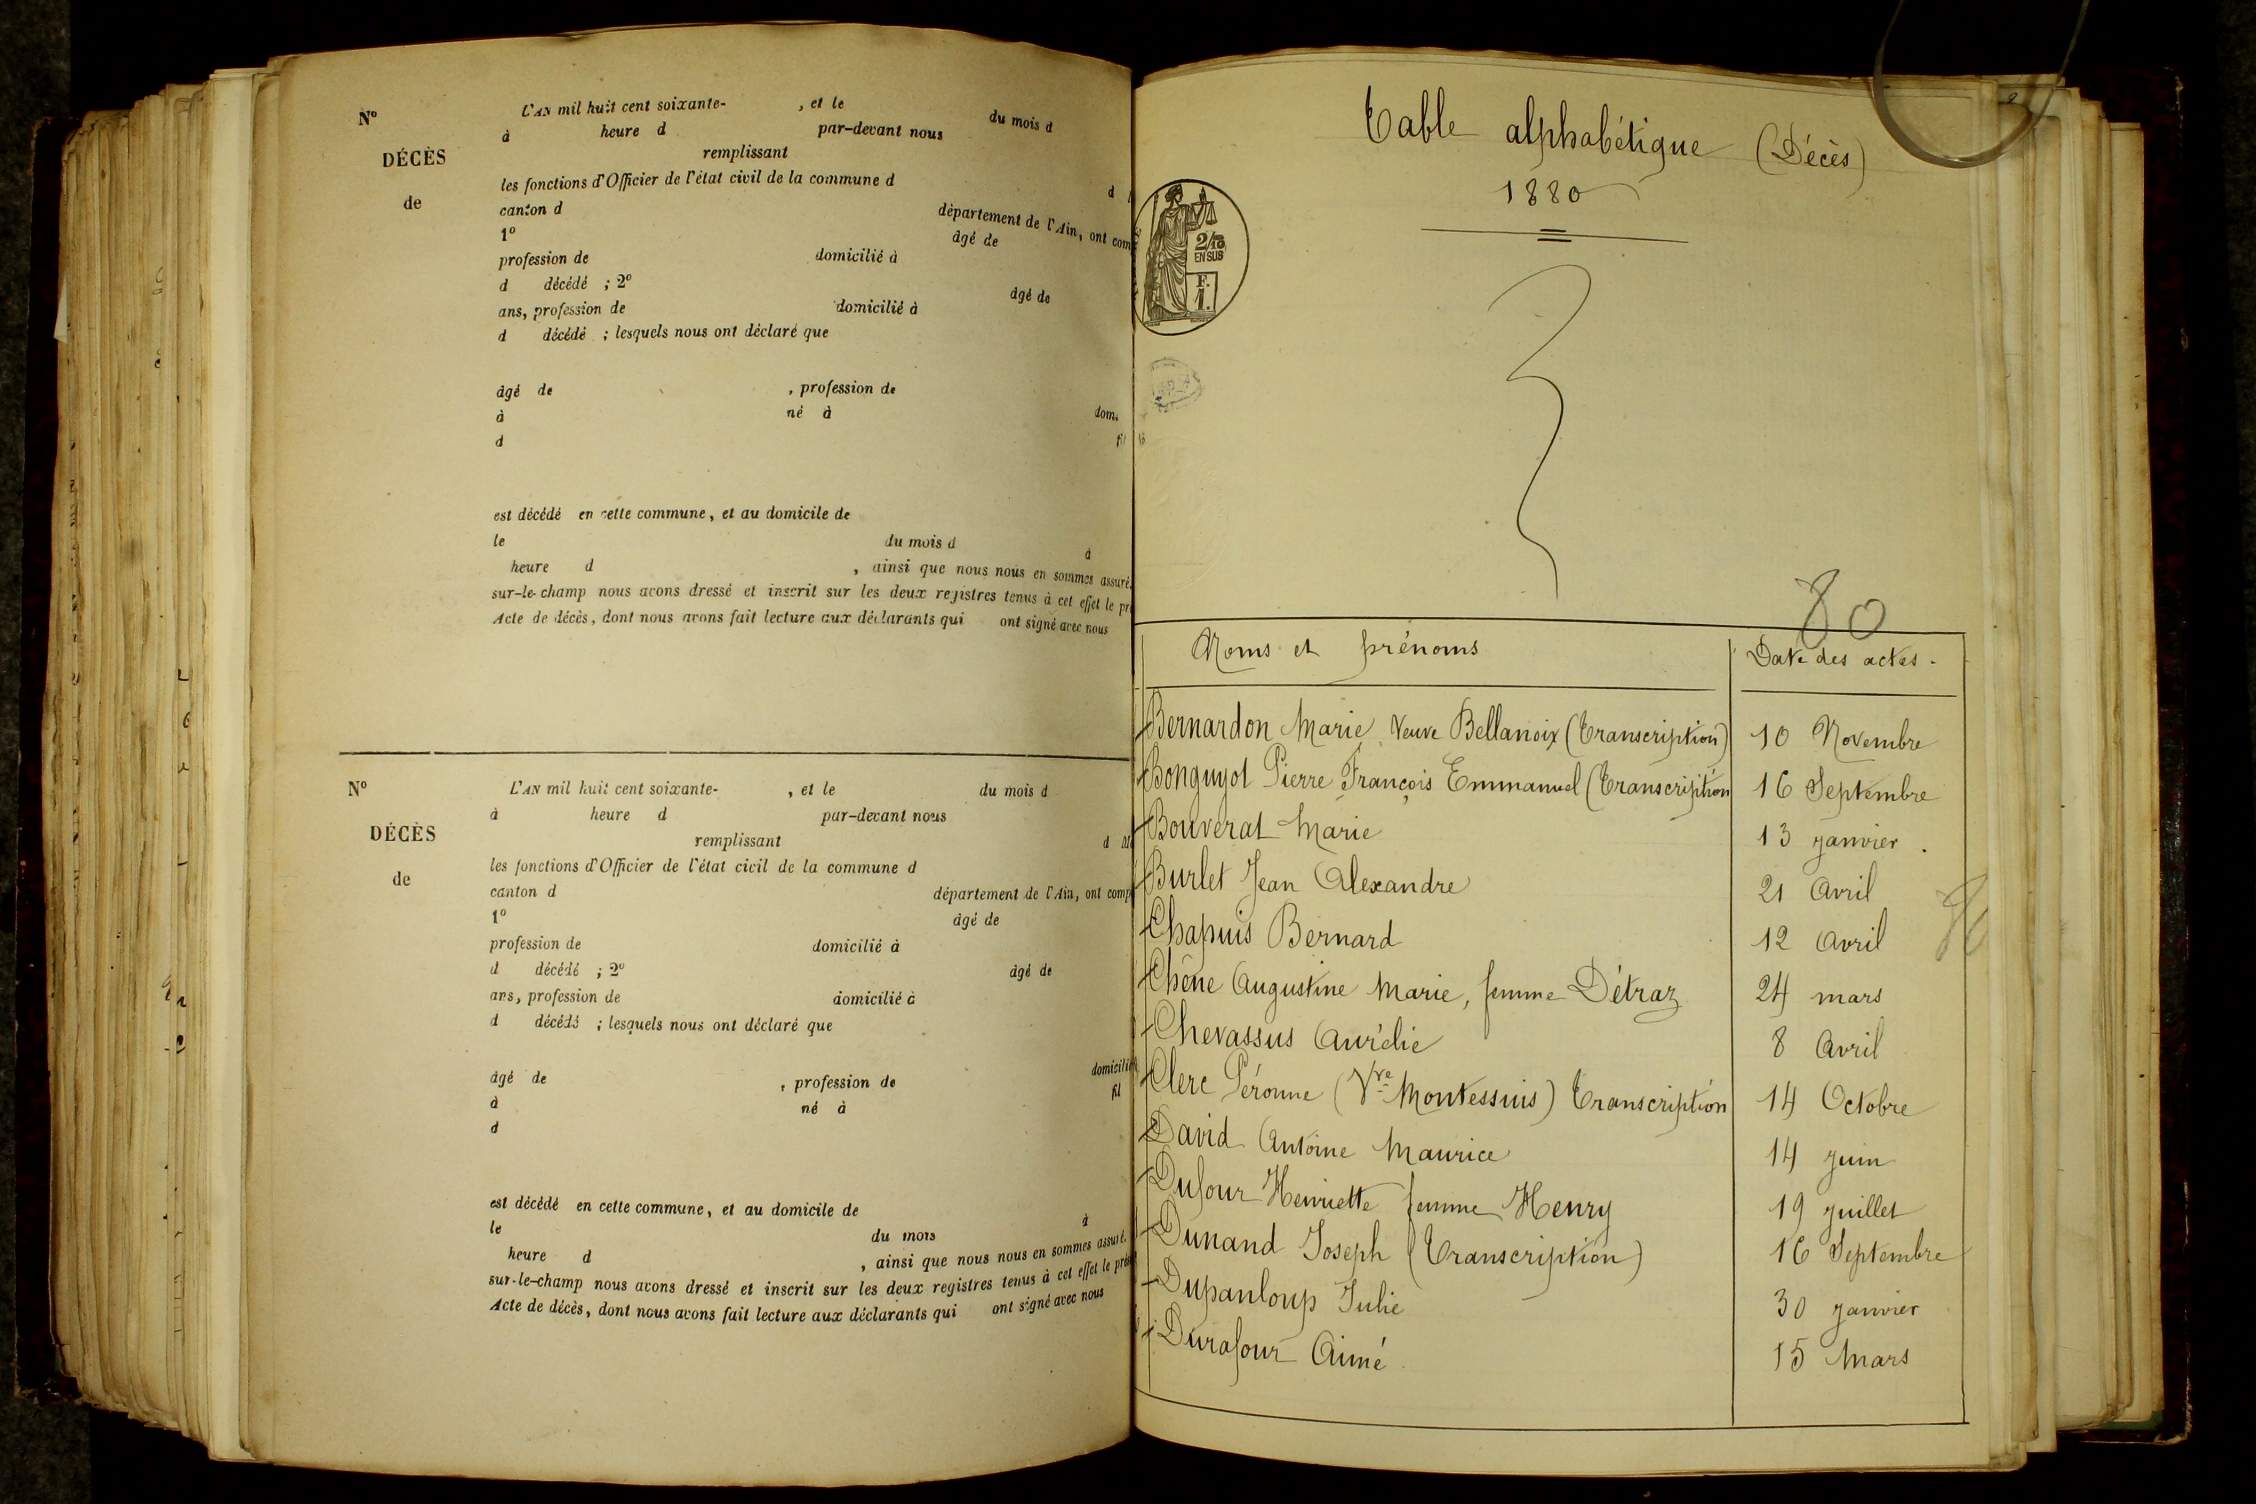 N° L'AN mil huit cent soixante- , et le du mois d
à heure d par-devant nous
DÉCÈS remplissant
de les fonctions d'Officier de l'état civil de la commune d d
canton d département de l'Ain, ont com
1° âgé de
profession de domicilié à
d décédé ; 2° âgé de
ans, profession de domicilié à
d décédé ; lesquels nous ont déclaré que
âgé de , profession de
à né à dom
d fil
est décédé en cette commune, et au domicile de
le du mois d à
heure d , ainsi que nous nous en sommes assuré.
sur-le-champ nous avons dressé et inscrit sur les deux registres tenus à cet effet le pr
Acte de décès, dont nous avons fait lecture aux déclarants qui ont signé avec nous
N° L'AN mil huit cent soixante- , et le du mois d
à heure d par-devant nous
DÉCÈS remplissant d
de les fonctions d'Officier de l'état civil de la commune d
canton d département de l'Ain, ont comp
1° âgé de
profession de domicilié à
d décédé ; 2° âgé de
ans, profession de domicilié à
d décédé ; lesquels nous ont déclaré que
domicilié
âgé de , profession de fil
à né à
d
est décédé en cette commune, et au domicile de
le du mois à
heure d , ainsi que nous nous en sommes assuré.
sur-le-champ nous avons dressé et inscrit sur les deux registres tenus à cet effet le prés
Acte de décès, dont nous avons fait lecture aux déclarants qui ont signé avec nous
Table alphabétique (Décès)
1880
2/10
EN SUS
F.
1.
80
Noms et prénoms Date des actes.
Bernardon Marie Veuve Bellanoix (Transcription) 10 Novembre
Bonguyot Pierre François Emmanuel (Transcription 16 Septembre
Bouverat Marie 13 janvier.
Burlet Jean Alexandre 21 Avril
Chapuis Bernard 12 Avril
Chêne Augustine Marie, femme Détraz 24 mars
Chevassus Aurélie 8 Avril
Clerc Péronne (Vve Montessuis) Transcription 14 Octobre
David Antoine Maurice 14 juin
Dufour Henriette femme Henry 19 juillet
Dunand Joseph (Transcription) 16 Septembre
Dupanloup Julie 30 janvier
Durafour Aimé 15 Mars